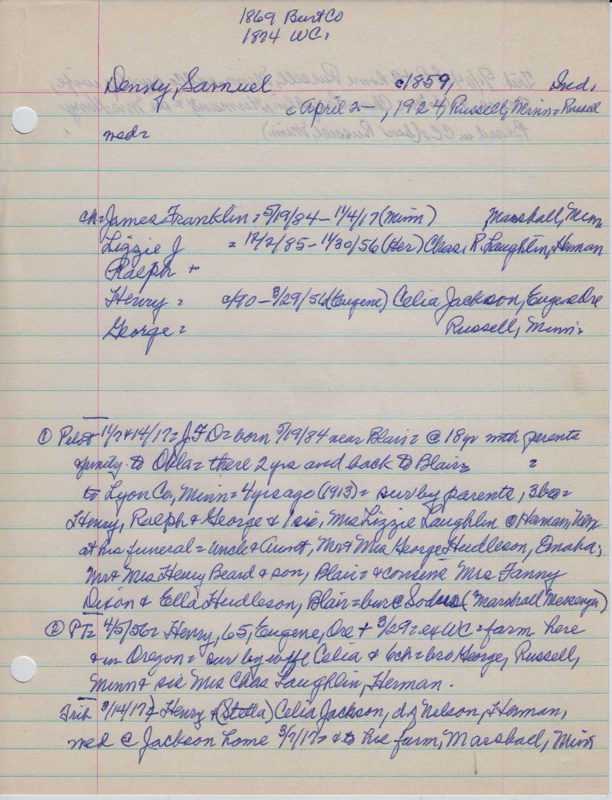 1869 Burt Co
1874 WC.
Denny, Samuel c1859, Ind.
c April 2-, 1924, Russell, Minn = Russell
wed =
ch = James Franklin = 5/19/84 - 11/4/17 (Minn) Marshall, Minn
Lizzie J = 12/2/85 - 11/30/56 (Her) Chas. R. Laughlin, Herman
Ralph +
Henry = c/90 - 3/29/56 (Eugene) Celia Jackson, Eugene Ore
George = Russell, Minn =
① Pilot 11/7 & 14/17 = J.F.D = born 5/19/84 near Blair = @ 18 yr with parents
& family to Okla = there 2 yrs and back to Blair =
to Lyon Co, Minn = 4 yrs ago (1913) = sur by parents, 3 bro =
Henry, Ralph & George & 1 sis, Mrs Lizzie Laughlin @ Herman,
at his funeral = uncle & aunt, Mr & Mrs George Hudleson, Omaha;
Mr & Mrs Henry Beard & son, Blair = & cousins Mrs Fanny
Dixon & Ella Hudleson, Blair = bur @ Sodus (Marshall Messenger)
② PT = 4/5/56 = Henry, 65, Eugene, Ore + 3/29 = ex WC = farm here
& in Oregon = sur by wife Celia & 6 ch = bro George, Russell,
Minn & sis Mrs Chas Laughlin, Herman.
Trib 3/14/17 = Henry & (Stella) Celia Jackson, d/ Nelson, Herman,
wed @ Jackson home 3/7/17 = & to his farm, Marshall, Minn